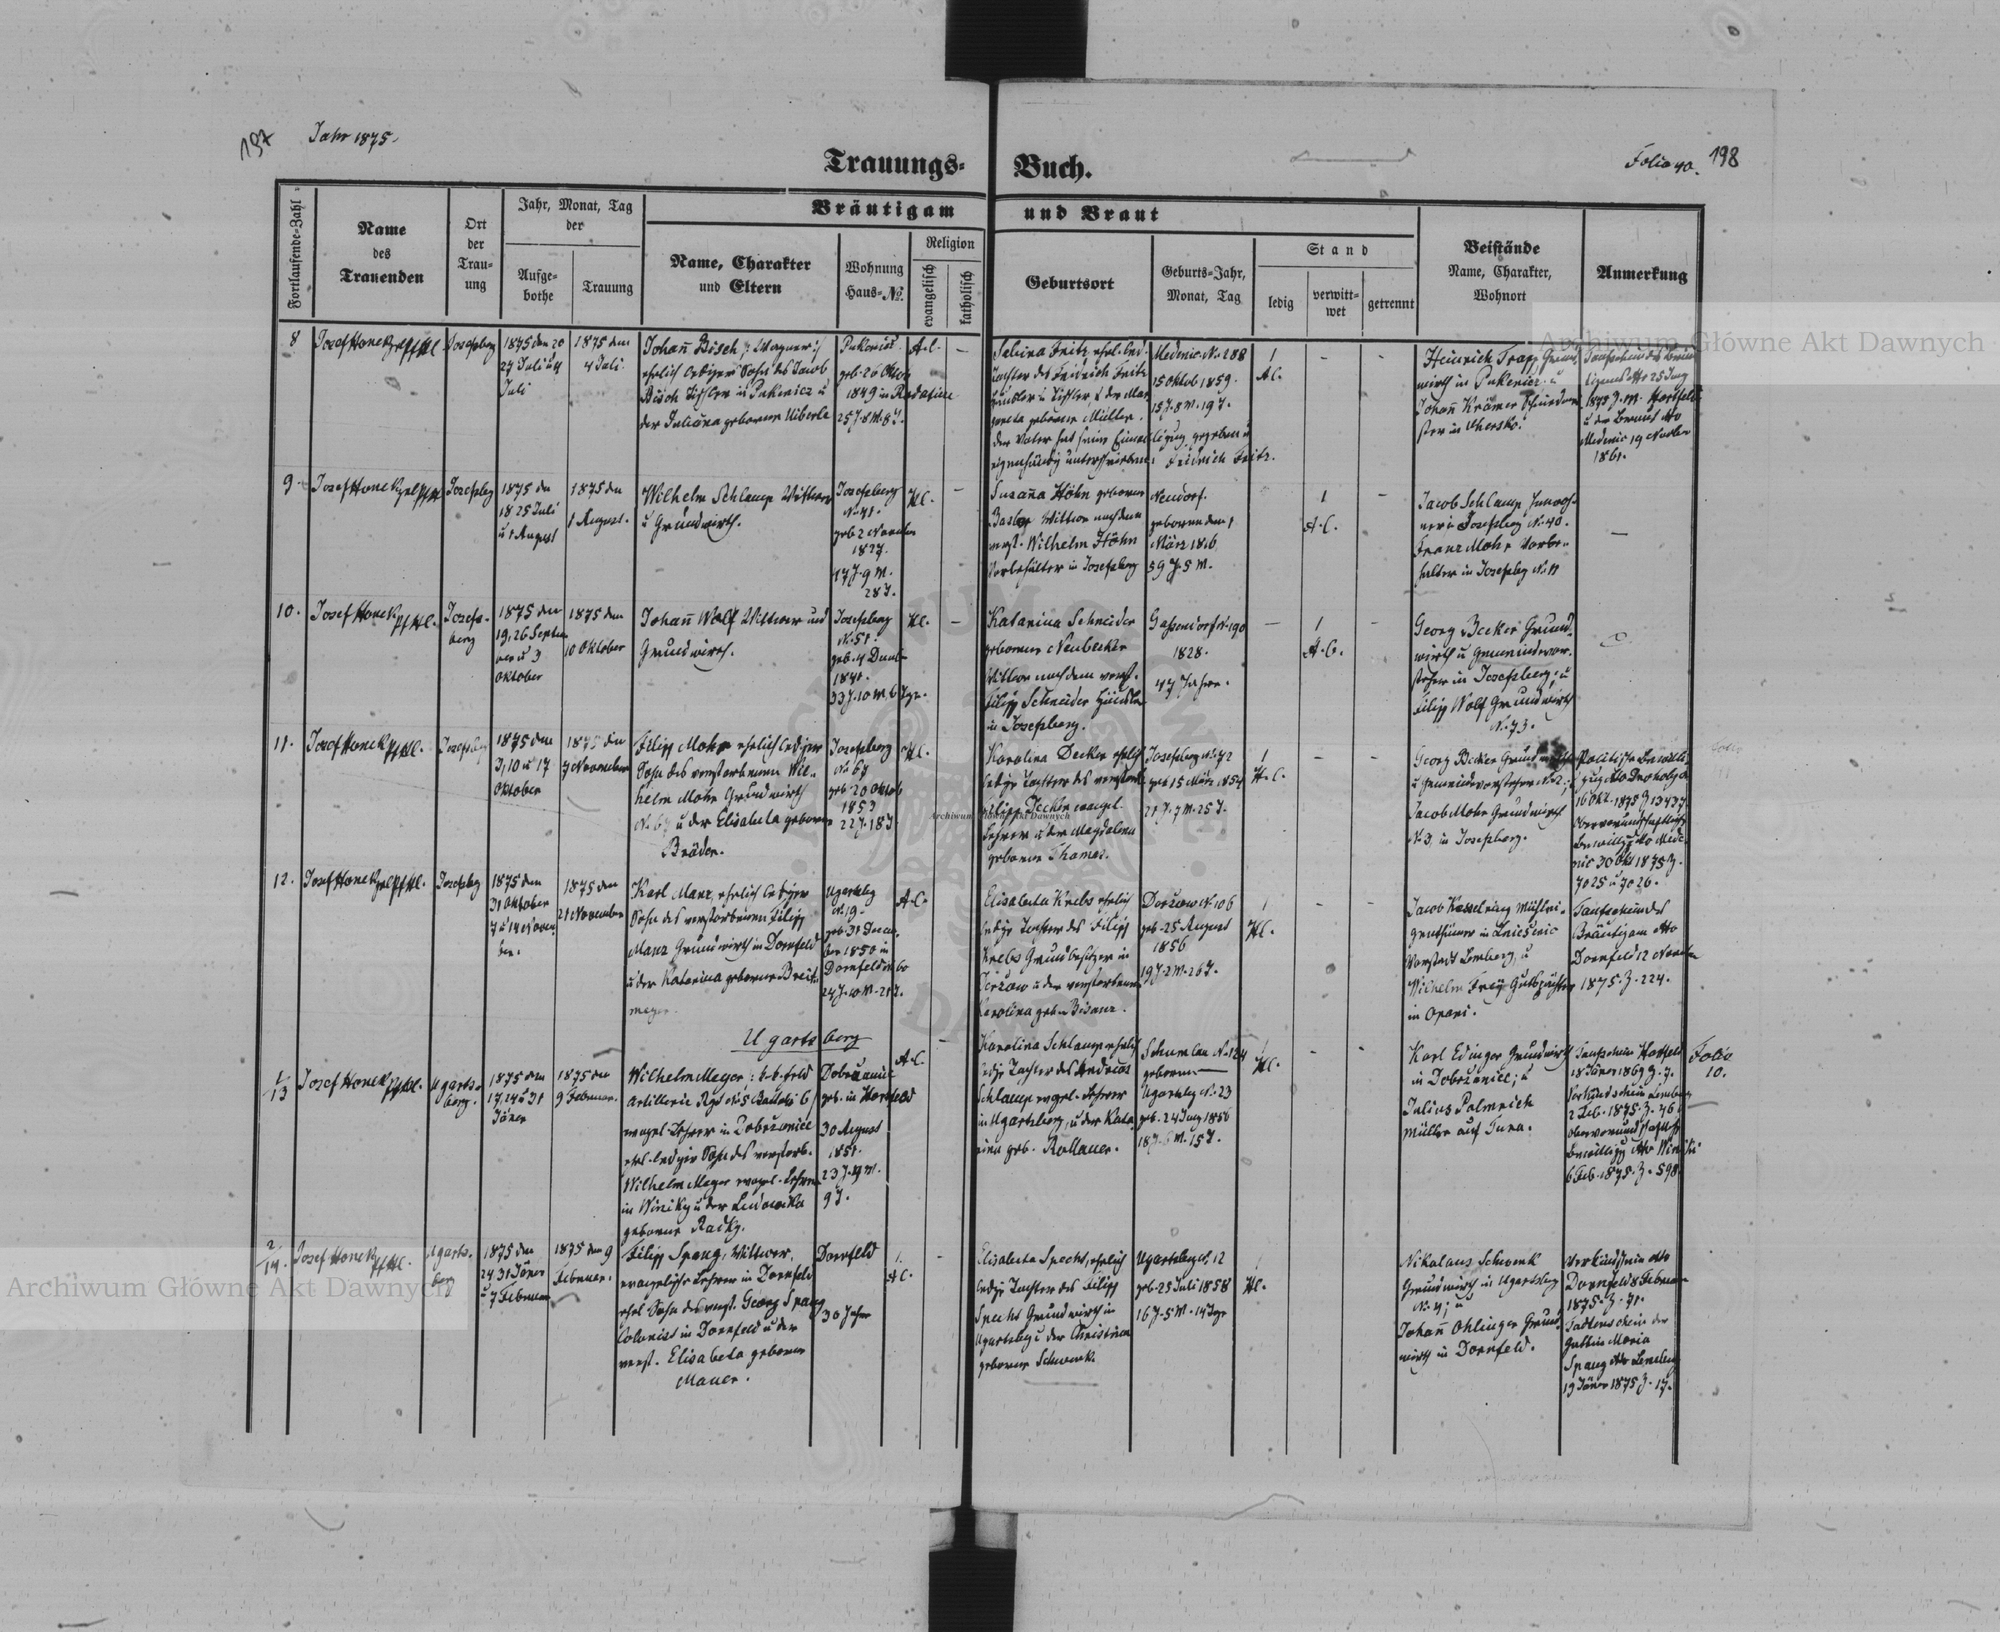 197
Jahr 1875.
Trauungs-Buch.
Folio 40. 198
Fortlaufende-Zahl
Name
des
Trauenden
Ort
der
Trau-
ung
Jahr, Monat, Tag
der
Aufge-
bothe
Trauung
Bräutigam und Braut
Name, Charakter
und Eltern
Wohnung
Haus-№.
Religion
evangelisch
katholisch
Geburtsort
Geburts-Jahr,
Monat, Tag
Stand
ledig
verwitt-
wet
getrennt
Beistände
Name, Charakter,
Wohnort
Anmerkung
8
Josef Honek
Josefsberg
1875 den 20
27 Juni u 4
Juli
1875 den
4 Juli
Johann Bisch
ehelich lediger Sohn des Jacob
Bisch Tischler in Pukenicz u
der Juliana geborene
geb. 26
1849 in
25 J. 8 M. 8 T.
A.C.
Sabina Fritz ehel. led.
Tochter des Fridrich Fritz
geborene Müller.
der Vater hat seine Einwilligung gegeben u
eigenhändig unterschrieben: Fridrich Fritz.
Medenic No. 288
15 Oktob 1859.
15 J. 8 M. 19 T.
1
A.C.
Heinrich Trapp Grund-
wirth in Pukenicz u
Johann Krämer
in
Medenic 19
1861.
9.
Josef Honek
Josefsbg
1875 den
18. 25 Juli
u 1 August
1875 den
1 August.
Wilhelm Schlamp Wittwer
u Grundwirth.
Josefsberg
No. 41.
geb 2 November
1827.
47 J. 9 M.
28 T.
H.C.
Susanna Höhn geborene
Wittwe nach dem
verst. Wilhelm Höhn
Vorbehälter in Josefsberg
Neudorf.
geboren den 1
März 1816
59 J. 5 M.
1
A.C.
Jacob Schlamp
in Josefsbg No. 40.
Franz Mohr Vorbe-
halter in Josefsbg No. 11
10.
Josef Honek
Josefs-
berg
1875 den
19, 26 Septem
ber u 3
Oktober
1875 den
10 Oktober
Johann Wolf Wittwer und
Grundwirth.
Josefsberg
No. 51.
1841.
33 J. 10 M. 6 Tge.
H.C.
Katarina Schneider
geborene Neubecker
Wittwe nach dem verst.
Filipp Schneider
in Josefsberg.
Gassendorf No. 190
1828.
47 Jahre.
1
A.C.
Georg Becker Grund-
wirth u Gemeindevor-
steher in Josefsberg; u
Filipp Wolf Grundwirth
No. 73.
11.
Josef Honek
Josefsbg
1875 den
3, 10 u 17
Oktober
1875 den
7 November
Filipp Mohr ehelich lediger
Sohn des verstorbenen Wil-
helm Mohr Grundwirth
No. 67 u der Elisabeta geborene
Bräder.
Josefsberg
No 67
geb. 20 Oktob
1853
22 J. 18 T.
H.C.
Karolina Decker ehelich
ledige Tochter des verstorb.
Filipp Decker evangel.
Lehrer u der Magdalena
geborene Thomas.
Josefsberg No. 72
geb 15 März 1854
21 J. 7 M. 25 T.
1
H.C.
Georg Becker Grundwirth
u Gemeindevorsteher
Jacob Mohr Grundwirth
No 3, in Josefsberg.
Politische Bewilli-
gung dto Drohobycz
16 Okt. 1875 Z. 13437
Obervormundschaftliche
Bewilligg dto Mede-
nic 30 Okt 1875 Z.
7025 u 7026.
12.
Josef Honek
Josefsbg
1875 den
31 Oktober
7 u 14 Novem-
ber.
1875 den
21 November
Karl Manz, ehelich lediger
Sohn des verstorbenen Filipp
Manz Grundwirth in Dornfeld
u der Katarina geborene Breit-
meyer.
Ugartsbg
No. 19.
geb 31 Decem-
ber 1850 in
Dornfeld No 60
24 J. 10 M. 21 T.
A.C.
Elisabeta Krebs ehelich
ledige Tochter des Filipp
Krebs Grundbesitzer in
u der verstorbenen
Karolina geb. Bisanz.
No 106
geb. 25 August
1856
19 J. 2 M. 26 T.
1
H.C.
Jacob Kesselring Mühlei-
genthümer in
Vorstadt Lemberg, u
Wilhelm Frey Gutspächter
in Opari.
Taufschein des
Bräutigam dto
Dornfeld 12 November
1875. Z. 224.
Ugartsberg
1/13
Josef Honek
Ugarts-
berg.
1875 den
17, 24 u 31
Jäner
1875 den
9 Februar.
Wilhelm Meyer, k. k. Feld
Artillerie Rgt No 5
evangel. Lehrer in Dobrzanice
ehel. lediger Sohn des verstorb.
Wilhelm Meyer evangel. Lehrer
in Winiki u der Ludowika
geborene Radky.
Dobrzanice
geb. in Hartfeld
30 August
1851.
23 J.
9 T.
A.C.
Karolina Schlamp ehelich
ledige Tochter des Andreas
Schlamp evgel. Lehrer
in Ugartsberg, u der Kata-
rina geb. Rollauer.
Schumlau No. 124
geboren
Ugartsbg No. 23
geb. 24 1856
H.C.
Karl Edinger Grundwirth
in Dobrzanice; u
Julius Palmrich
Müller auf Tura.
Taufschein Hartfeld
18 Jäner 1869 Z. 7.
Verkündschein Lemberg
2 Feb. 1875. Z. 46
Obervormundschaftl
Bewilligg dto Winniki
6 Feb. 1875. Z. 598.
Folio
10.
2/14.
Josef Honek
Ugarts-
berg
1875 den
24 31 Jäner
u 7 Februar
1875 den 9
Februar.
Filipp Spang, Wittwer,
evangelischer Lehrer in Dornfeld
ehel Sohn des verst. Georg Spang
Colonist in Dornfeld u der
verst. Elisabeta geborene
Mauer.
Dornfeld
30 Jahre
A.C.
Elisabeta Specht, ehelich
ledige Tochter des Filipp
Specht Grundwirth in
Ugartsbg u der Christina
geborene Schwenk.
Ugartsbg No. 12
geb. 25 Juli 1858
16 J. 5 M. 14 Tge
H.C.
Nikolaus Schwenk
Grundwirth in Ugartsbg
No. 4; u
Johann Ohlinger Grund-
wirth in Dornfeld.
Verkündschein dto
Dornfeld 8 Februar
1875. Z. 31.
Todtenschein der
Gattin Maria
Spang dto Lemberg
19 Jäner 1875 Z. 17.
Archiwum Główne Akt Dawnych
Archiwum Główne Akt Dawnych
Archiwum Główne Akt Dawnych